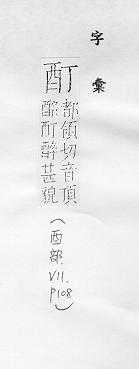 字彙
酊
都領切音頂
酩酊醉甚貌
(酉部.VII.P108)